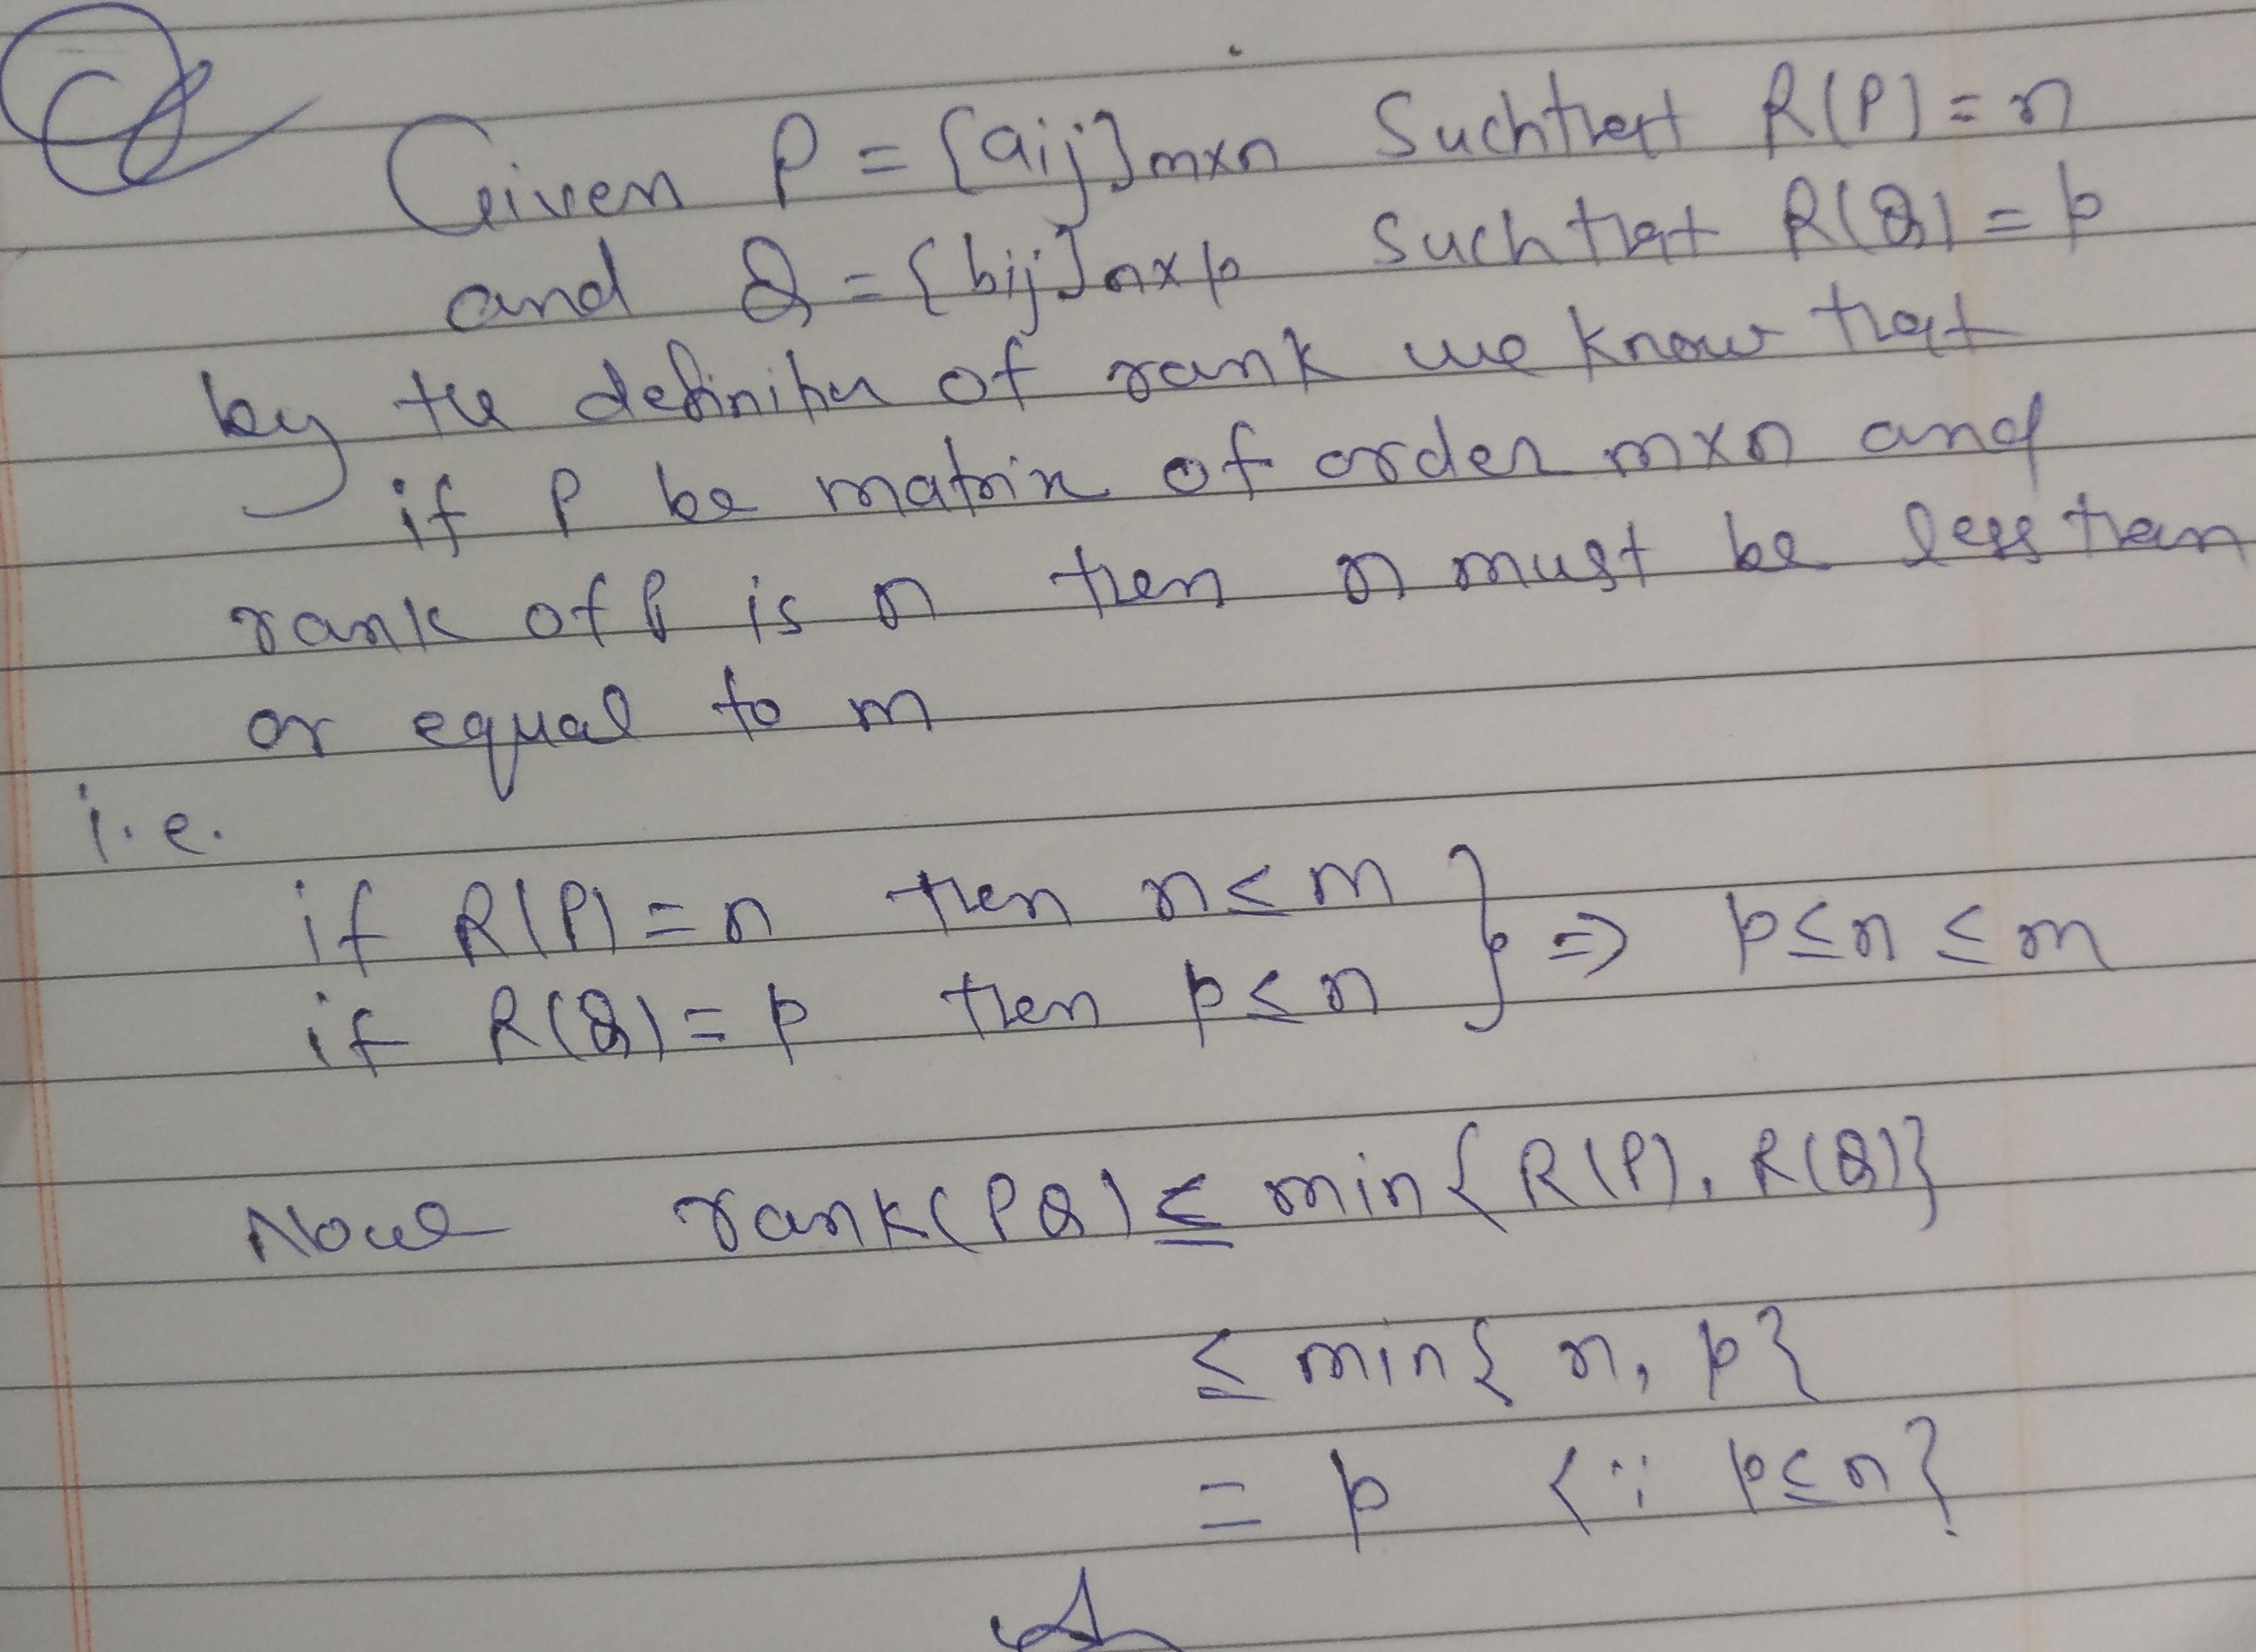 Given P = [aij]mxn Suchthat R(P) = n
and Q = [bij]nxp Such that R(Q) = p
by the definition of rank we know that
if P be matrix of order mxn and
rank of P is n then n must be less than
or equal to m
i.e.
if R(P) = n then n ≤ m } => p ≤ n ≤ m
if R(Q) = p then p ≤ n
Now rank(PQ) ≤ min{R(P), R(Q)}
≤ min{n, p}
= p {∵ p ≤ n}